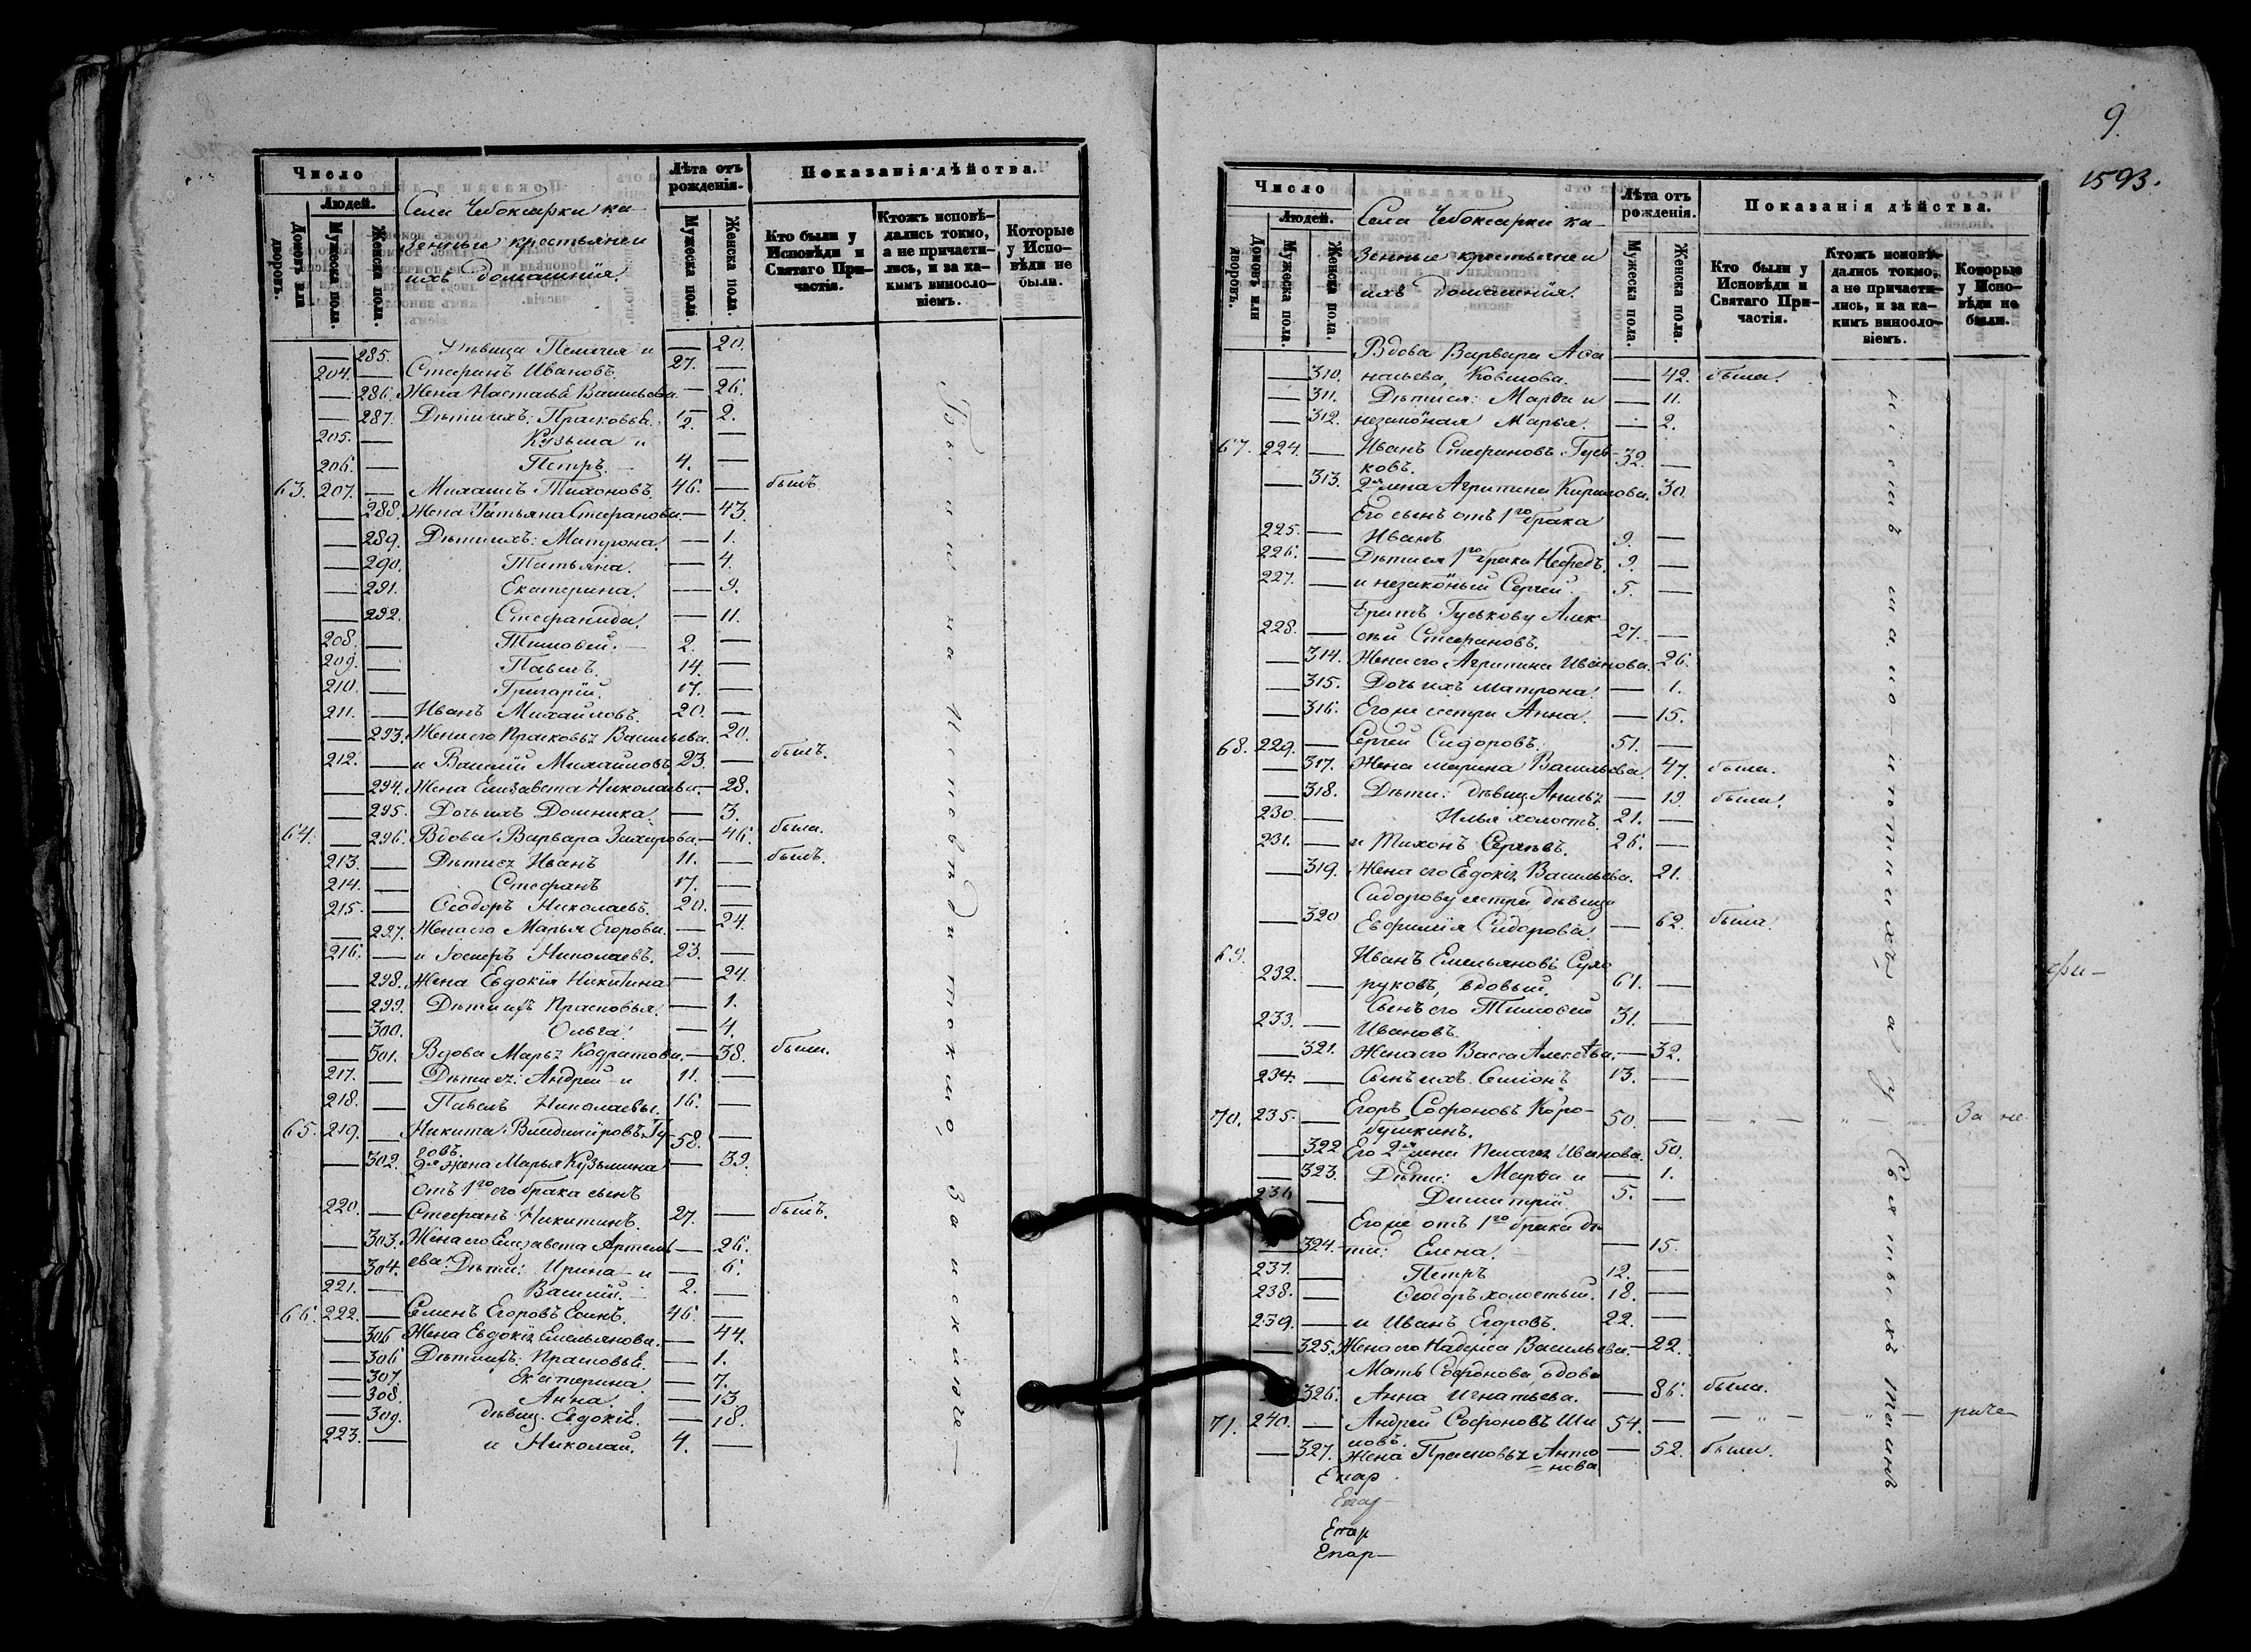 Число
Людей.
Домовъ или дворовъ.
Мужеска пола.
Женска пола.
Села Чебоксарки ка-
зенные крестьяне и
ихъ домашнія.
Лѣта отъ рожденія.
Мужеска пола.
Женска пола.
Показанія дѣйства.
Кто были у Исповѣди и Святаго При-частія.
Ктожъ исповѣ-дались токмо, а не причасти-лись, и за ка-кимъ виносло-віемъ.
Которые у Испо-вѣди не были.
— 285. Дѣвица Пелагія и — 20.
204. — Стефанъ Ивановъ. 27. —
— 286. Жена Настасья Васильева — 26.
— 287. Дѣти ихъ: Прасковья. — 2.
205. — Кузьма и 2. —
206. — Петръ. 4. —
63. 207. — Михаилъ Тихоновъ. 46. — былъ
— 288. Жена Татьяна Стефанова. — 43.
— 289. Дѣти ихъ: Матрона. — 1.
— 290. Татьяна. — 4.
— 291. Екатерина. — 9.
— 292. Стефанида. — 11.
208. — Тимофей. 2. —
209. — Павелъ. 14. —
210. — Григорій. 17. —
211. — Иванъ Михайловъ. 20. —
— 293. Жена его Прасковья Васильева. 20.
212. — и Василій Михайловъ 23. — былъ.
— 294. Жена Елизавета Николаева. — 28.
— 295. Дочь ихъ Домника — 3.
64. — 296. Вдова Варвара Захарова. — 46. была.
213. — Дѣти ея Иванъ 11. — былъ.
214. — Стефанъ 17. —
215. — Ѳеодоръ Николаевъ. 20. —
— 297. Жена его Марья Егорова. — 24.
216. — и Іосифъ Николаевъ. 23. —
— 298. Жена Евдокія Никитина — 24.
— 299. Дѣти ихъ Прасковья. — 1.
— 300. Ольга. — 4.
— 301. Вдова Марья Кодратова. — 38. была.
217. — Дѣти ея: Андрей и 11. —
218. — Павелъ Николаевы. 16. —
65. 219. — Никита Владиміровъ Гу- 58. —
— 302. 2я жена Марья Кузьмина — 39.
отъ 1го его брака сынъ
220. — Стефанъ Никитинъ. 27. — былъ.
— 303. Жена его Елизавета Артемь — 26.
— 304. ева. Дѣти: Ирина и — 6.
221. — Василій. 2. —
66. 222. — Семенъ Егоровъ 46. —
— 305 Жена Евдокія Емельянова. — 44.
— 306 Дѣти ихъ: Прасковья. — 1.
— 307. Екатерина — 7.
— 308. Анна. — 13.
— 309. дѣвиц. Евдокія. — 18.
223. — и Николай. 4. —
Были на исповѣди токмо, за исключе—
9.
1593.
Число
Людей.
Домовъ или дворовъ.
Мужеска пола.
Женска пола.
Села Чебоксарки ка-
зенные крестьяне и
ихъ домашнія.
Лѣта отъ рожденія.
Мужеска пола.
Женска пола.
Показанія дѣйства.
Кто были у Исповѣди и Святаго При-частія.
Ктожъ исповѣ-дались токмо, а не причасти-лись, и за ка-кимъ виносло-віемъ.
Которые у Испо-вѣди не были.
Вдова Варвара Аѳа
— 310. насьева, Ковшова. — 42. была.
— 311. Дѣти ея: Марѳа и — 11.
— 312. незаконная Марья. — 2.
67. 224. — Иванъ Стефановъ Гусь- 32. —
ковъ.
— 313. 2я жена Агрипина Кирилова. 30.
Его сынъ отъ 1го брака
225. — Иванъ 9. —
226. — Дѣти ея 1го брака Нефедъ. 9. —
227. — и незаконый Сергей. 5. —
братъ Гуськову Алек
228. — сѣй Стефановъ. 27. —
— 314. Жена его Агрипина Иванова. 26.
— 315. Дочь ихъ Матрона. — 1.
— 316. Его же сестра Анна. — 15.
68. 229. — Сергей Сидоровъ. 51. —
— 317. Жена Марина Васильева. 47. была.
— 318. Дѣти: дѣвиц. — 19. была.
230. — Илья холостъ. 21. —
231. — и Тихонъ Сергѣевъ. 26. —
— 319. Жена его Евдокія Васильева. 21.
Сидорову сестра дѣвица
— 320 Евфимія Сидорова. — 62. была.
69. Иванъ Емельяновъ Сухо
232. — руковъ, вдовый. 61. —
Сынъ его Тимофей
233. — Ивановъ. 31. —
— 321. Жена его Васса Алексѣева. — 32.
234. — Сынъ ихъ Семіонъ 13. —
70. 235. — Егоръ Софоновъ Коро- 50. — — „ — „ — За не
бушкинъ.
— 322 Его 2я жена Пелагея Иванова. 50.
— 323. Дѣти: Марѳа и — 1.
236 — Димитрій. 5. —
Его же отъ 1го брака дѣ
— 324. ти: Елена. — 15.
237. — Петръ 12. —
238. — Ѳеодоръ холостый. 18. —
239. — и Иванъ Егоровъ. 22. —
— 325. Жена его Надежда Васильева. — 22.
Мать Софонова, вдова
326. Анна Игнатьева. — 86. была.
71. 240. — Андрей Софоновъ Ши 54. — — „ — „ — раче
ловъ.
— 327. Жена Прасковья Анто — 52. была.
=нова
ніемъ малолѣтнихъ, а у Святыхъ Таинъ
Епар
Епар
Епар
Епар—